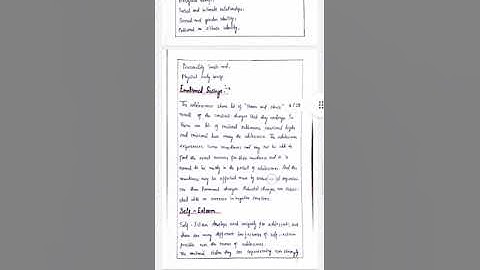 Social and intimate relationships,
Sexual and gender identity,
National or Ethnic identity,
Personality traits and,
Physical body image
Emotional Swings :-
The adolescence show lot of "Storm and stress" as a
result of the emotional changes that they undergo. In
There are lot of emotional outbursts, emotional highs
and emotional lows among the adolescence. The adolescence
experiences some emotions and may not be able to
find the exact reasons for their emotions and it is
normal to be moody in the period of adolescence. And the
emotions may be affected more by
than hormonal changes. Pubertal changes are
with an increase in negative emotions.
Self - Esteem
Self - Esteem develops and uniquely for adolescents, and
there are many different of self-esteem
possible over the course of adolescence.